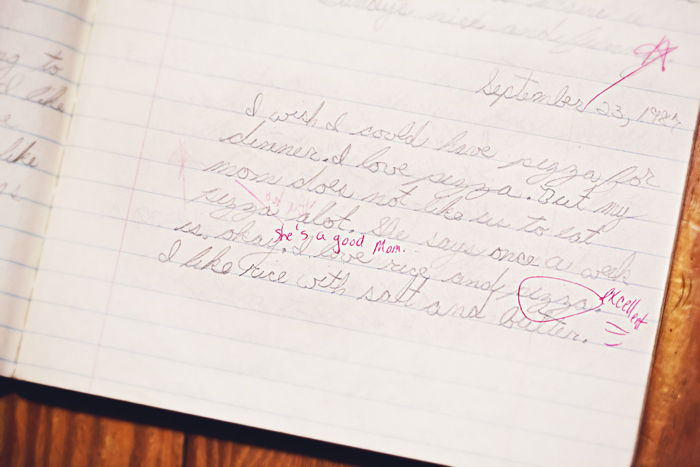 nice and
September 23, 198
I wish I could have pizza for
dinner. I love pizza. But my
mom does not like us to eat
pizza alot. He says once a week
is okay. I love rice and pizza.
She's a good Mom.
excellent
I like rice with salt and butter.
to
like
like